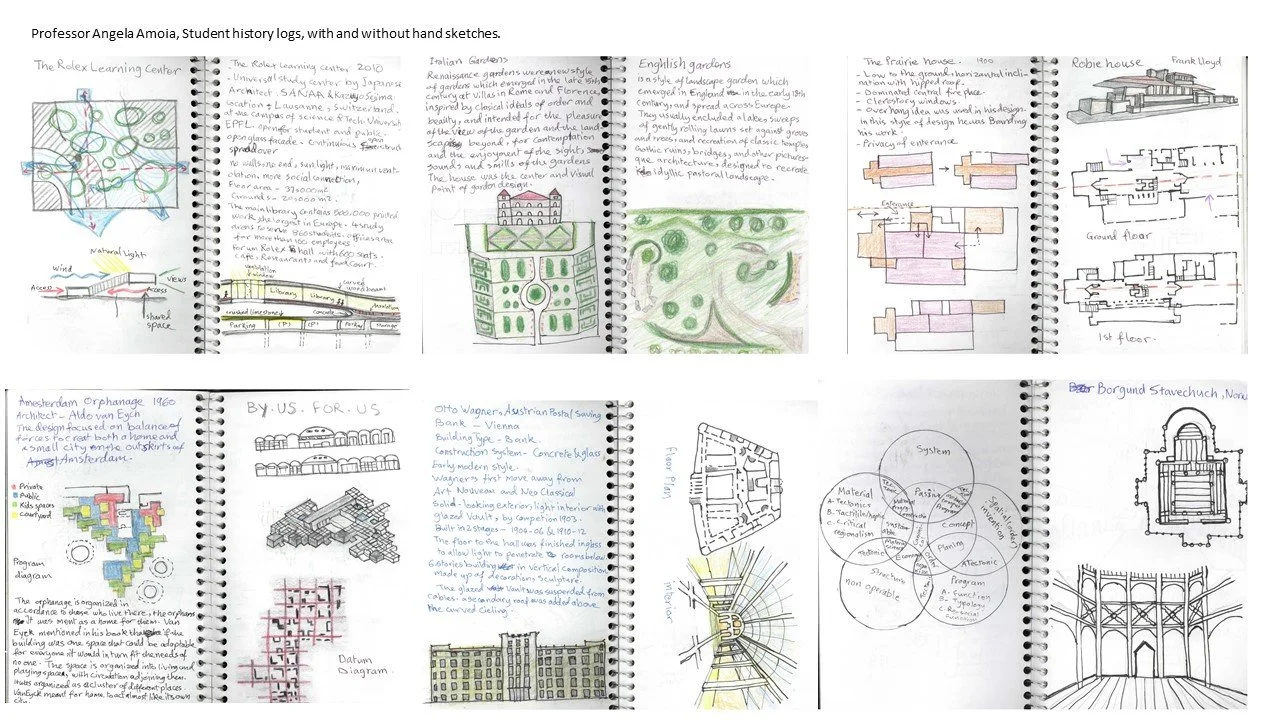 Professor Angela Amoia, Student history logs, with and without hand sketches.
The Rolex Learning Center
Natural Light
Wind
Views
Access
Access
shared
space
The Rolex Learning center 2010
- Universal study center by Japanese
Architect. SANAA & Kazuyo Sejima
Location + Lausanne, Switzerland.
at the campus of science & Tech. Universit
EPFL. open for student and public.
open glass facade - Continuous
spread over
no walls, no end, sun light, maximum vent-
ilation, more social connection,
Floor area - 37,000 m2
Grounds - 20,000 m2.
The main library contains 500,000 printed
work, the largest in Europe. 4 study
areas to serve 860 students. office
for more than 100 employees
for un Rolex hall with 600 seats.
cafe, Restaurants and food court.
Library
Library
curved
wood beam
crushed limestone
Concrete
Parking
(P)
(P)
Parkg
Storage
Italian Gardens
Renaissance gardens were a new style
of gardens which emerged in the late 15th
century at villas in Rome and Florence,
inspired by clasical ideals of order and
beality, and intended for the pleasure
of the view of the garden and the land
scape beyond, for contemplation
and the enjoyment of the sights
sounds and smills of the gardens
The house was the center and visual
point of garden design.
Enghlish gardens
is a style of landscape garden which
emerged in England in the early 18th
century, and spread across Europe.
They usually included a lake, sweeps
of gently rolling lawns set against groves
and trees, and recreation of classic temples
Gothic ruins, bridges, and other pictures-
que architecture, designed to recreate
idyllic pastoral landscape.
The Prairie house. 1900
- Low to the ground, horizantal incli-
nation with hipped roof.
- Dominated central fire place.
- Clerestory windows.
- Over hang idea was used in his design.
in this style of design he was Branding
his work.
- Privacy of enterance
Enterance
Robie house Frank Lloyd
Ground floor
1st floor.
Amesterdam Orphanage 1960
Architect - Aldo van Eych
The design focused on balance of
forces to creat both a home and
a small city on the outskirts of
Amsterdam.
Private
Public
Kids spaces
Courtyard
Program
diagram
The orphanage is organized in
accordance to those who live there, the orphans
It was ment as a home for them. Van
Eyck mentioned in his book that if the
building was one space that could be adaptable
for everyone it would in turn fit the needs of
no one - The space is organized into living and
playing spaces, with circulation adjoining them.
Its organized as a cluster of different places
Van Eyck meant for home, to act almost like its own
city.
BY. US. FOR. US
Datum
Diagram.
Otto Wagner, Austrian Postal Saving
Bank - Vienna
Building Type - Bank.
Construction System - Concrete & glass
Early modern style -
Wagner's first move away from
Art Nouveau and Neo Classical
Solid-looking exterior, light interior with
glazed Vault, by competion 1903.
Built in 2 stages - 1904-06 & 1910-12
The floor to the hall was finished in glass
to allow light to penetrate rooms below
6 stories building in vertical composition
made up of decorations sculpture.
The glazed Vault was suspended from
cables - a secondary roof was added above
the curved cieling.
Floor Plan
interior
System
Material
A. Tectonics
C. Critical
regionalism
Passive
Concept
Planing
Tectonic
Structure
non operable
ATectonic
Program
A. Function
Borgund Stavechuch,